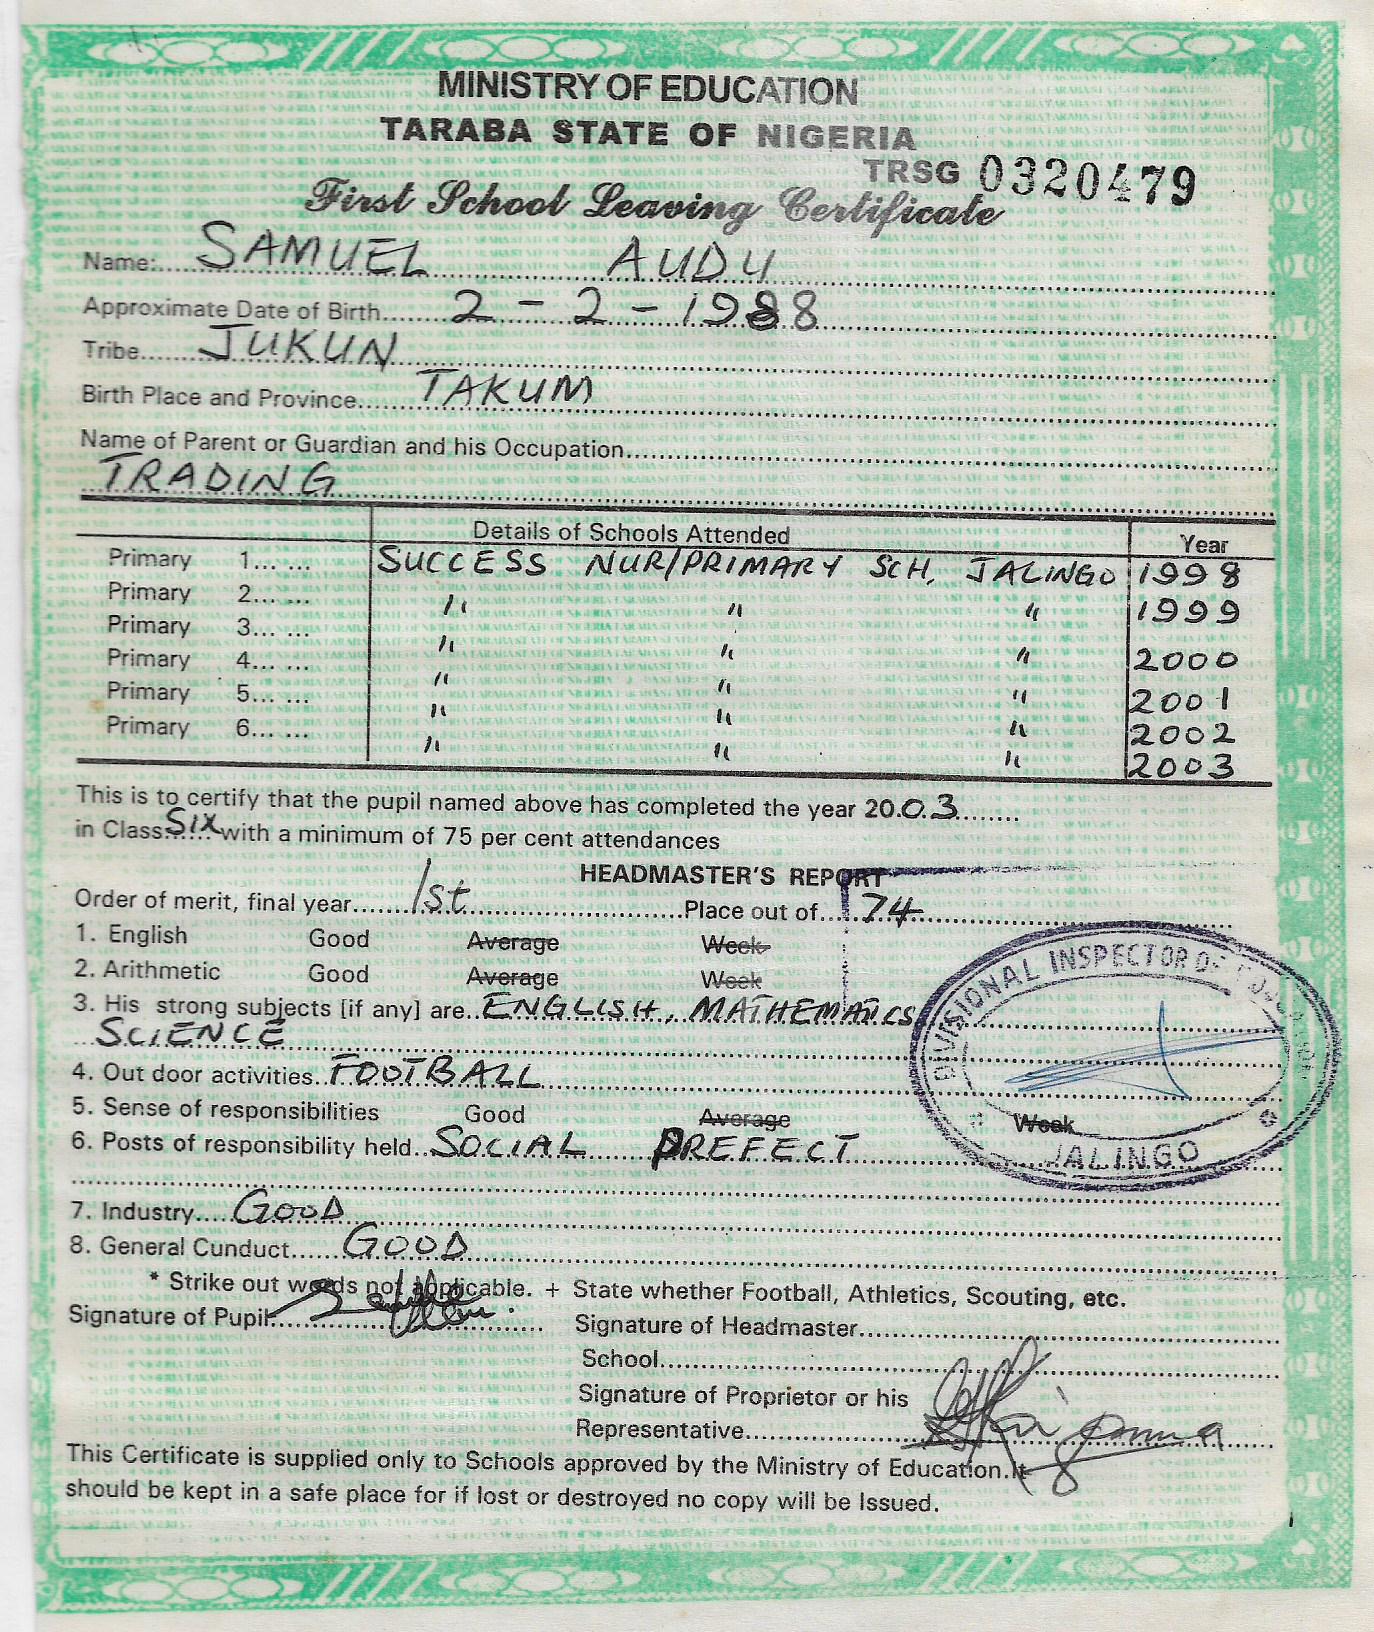 MINISTRY OF EDUCATION
TARABA STATE OF NIGERIA
TRSG 0320479
First School Leaving Certificate
Name:..... SAMUEL AUDU
Approximate Date of Birth..... 2 - 2 - 1988
Tribe..... JUKUN
Birth Place and Province..... TAKUM
Name of Parent or Guardian and his Occupation.....
TRADING
Details of Schools Attended Year
Primary 1... ... SUCCESS NUR/PRIMARY SCH, JALINGO 1998
Primary 2... ... " " " 1999
Primary 3... ... " " " 2000
Primary 4... ... " " " 2001
Primary 5... ... " " " 2002
Primary 6... ... " " " 2003
This is to certify that the pupil named above has completed the year 20.03.....
in Class: SIX with a minimum of 75 per cent attendances
HEADMASTER'S REPORT
Order of merit, final year..... 1st .....Place out of.... 74
1. English Good Average Week
2. Arithmetic Good Average Week
3. His strong subjects [if any] are.. ENGLISH, MATHEMATICS
SCIENCE
4. Out door activities.. FOOTBALL
5. Sense of responsibilities Good Average Week
6. Posts of responsibility held.. SOCIAL PREFECT
DIVISIONAL INSPECTOR OF
JALINGO
7. Industry.... GOOD
8. General Cunduct...... GOOD
* Strike out words not applicable. + State whether Football, Athletics, Scouting, etc.
Signature of Pupil.....
Signature of Headmaster.....
School.....
Signature of Proprietor or his
Representative.....
This Certificate is supplied only to Schools approved by the Ministry of Education. It
should be kept in a safe place for if lost or destroyed no copy will be Issued.